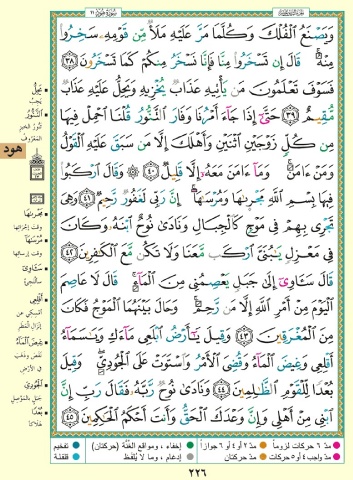 سُورَةُ هُودٍ ١١
وَيَصْنَعُ ٱلْفُلْكَ وَكُلَّمَا مَرَّ عَلَيْهِ مَلَأٌ مِّن قَوْمِهِۦ سَخِرُوا۟
مِنْهُ ۚ قَالَ إِن تَسْخَرُوا۟ مِنَّا فَإِنَّا نَسْخَرُ مِنكُمْ كَمَا تَسْخَرُونَ ٣٨
فَسَوْفَ تَعْلَمُونَ مَن يَأْتِيهِ عَذَابٌ يُخْزِيهِ وَيَحِلُّ عَلَيْهِ عَذَابٌ
مُّقِيمٌ ٣٩ حَتَّىٰٓ إِذَا جَآءَ أَمْرُنَا وَفَارَ ٱلتَّنُّورُ قُلْنَا ٱحْمِلْ فِيهَا
مِن كُلٍّ زَوْجَيْنِ ٱثْنَيْنِ وَأَهْلَكَ إِلَّا مَن سَبَقَ عَلَيْهِ ٱلْقَوْلُ
وَمَنْ ءَامَنَ ۚ وَمَآ ءَامَنَ مَعَهُۥٓ إِلَّا قَلِيلٌ ٤٠ ۞ وَقَالَ ٱرْكَبُوا۟
فِيهَا بِسْمِ ٱللَّهِ مَجْر۪ىٰهَا وَمُرْسَىٰهَآ ۚ إِنَّ رَبِّى لَغَفُورٌ رَّحِيمٌ ٤١ وَهِىَ
تَجْرِى بِهِمْ فِى مَوْجٍ كَٱلْجِبَالِ وَنَادَىٰ نُوحٌ ٱبْنَهُۥ وَكَانَ
فِى مَعْزِلٍ يَٰبُنَىَّ ٱرْكَب مَّعَنَا وَلَا تَكُن مَّعَ ٱلْكَٰفِرِينَ ٤٢
قَالَ سَـَٔاوِىٓ إِلَىٰ جَبَلٍ يَعْصِمُنِى مِنَ ٱلْمَآءِ ۚ قَالَ لَا عَاصِمَ
ٱلْيَوْمَ مِنْ أَمْرِ ٱللَّهِ إِلَّا مَن رَّحِمَ ۚ وَحَالَ بَيْنَهُمَا ٱلْمَوْجُ فَكَانَ
مِنَ ٱلْمُغْرَقِينَ ٤٣ وَقِيلَ يَٰٓأَرْضُ ٱبْلَعِى مَآءَكِ وَيَٰسَمَآءُ
أَقْلِعِى وَغِيضَ ٱلْمَآءُ وَقُضِىَ ٱلْأَمْرُ وَٱسْتَوَتْ عَلَى ٱلْجُودِىِّ ۖ وَقِيلَ
بُعْدًا لِّلْقَوْمِ ٱلظَّٰلِمِينَ ٤٤ وَنَادَىٰ نُوحٌ رَّبَّهُۥ فَقَالَ رَبِّ إِنَّ
ٱبْنِى مِنْ أَهْلِى وَإِنَّ وَعْدَكَ ٱلْحَقُّ وَأَنتَ أَحْكَمُ ٱلْحَٰكِمِينَ ٤٥
يَحِلُّ
يجبُ
التَّنُّورُ
تنورُ الخبزِ
المعروف
هود
مَجْرىٰهَا
وقت إجرائها
مُرْسَاهَا
وقت إرسائها
سَآوِي
سألتجئ
أَقْلِعِي
أمسكي عن
إنزال المطر
غِيضَ المَاءُ
نقص وذهب
في الأرض
الجُودِيِّ
جبل بالموصل
بُعْدًا
هلاكا
مدّ ٦ حركات لزوماً
مدّ ٢ أو ٤ أو ٦ جوازاً
إخفاء، ومواقع الغُنَّة (حركتان)
تفخيم
مدّ واجب ٤ أو ٥ حركات
مدّ حركتان
إدغام، وما لا يُلفَظ
قلقلة
٢٢٦